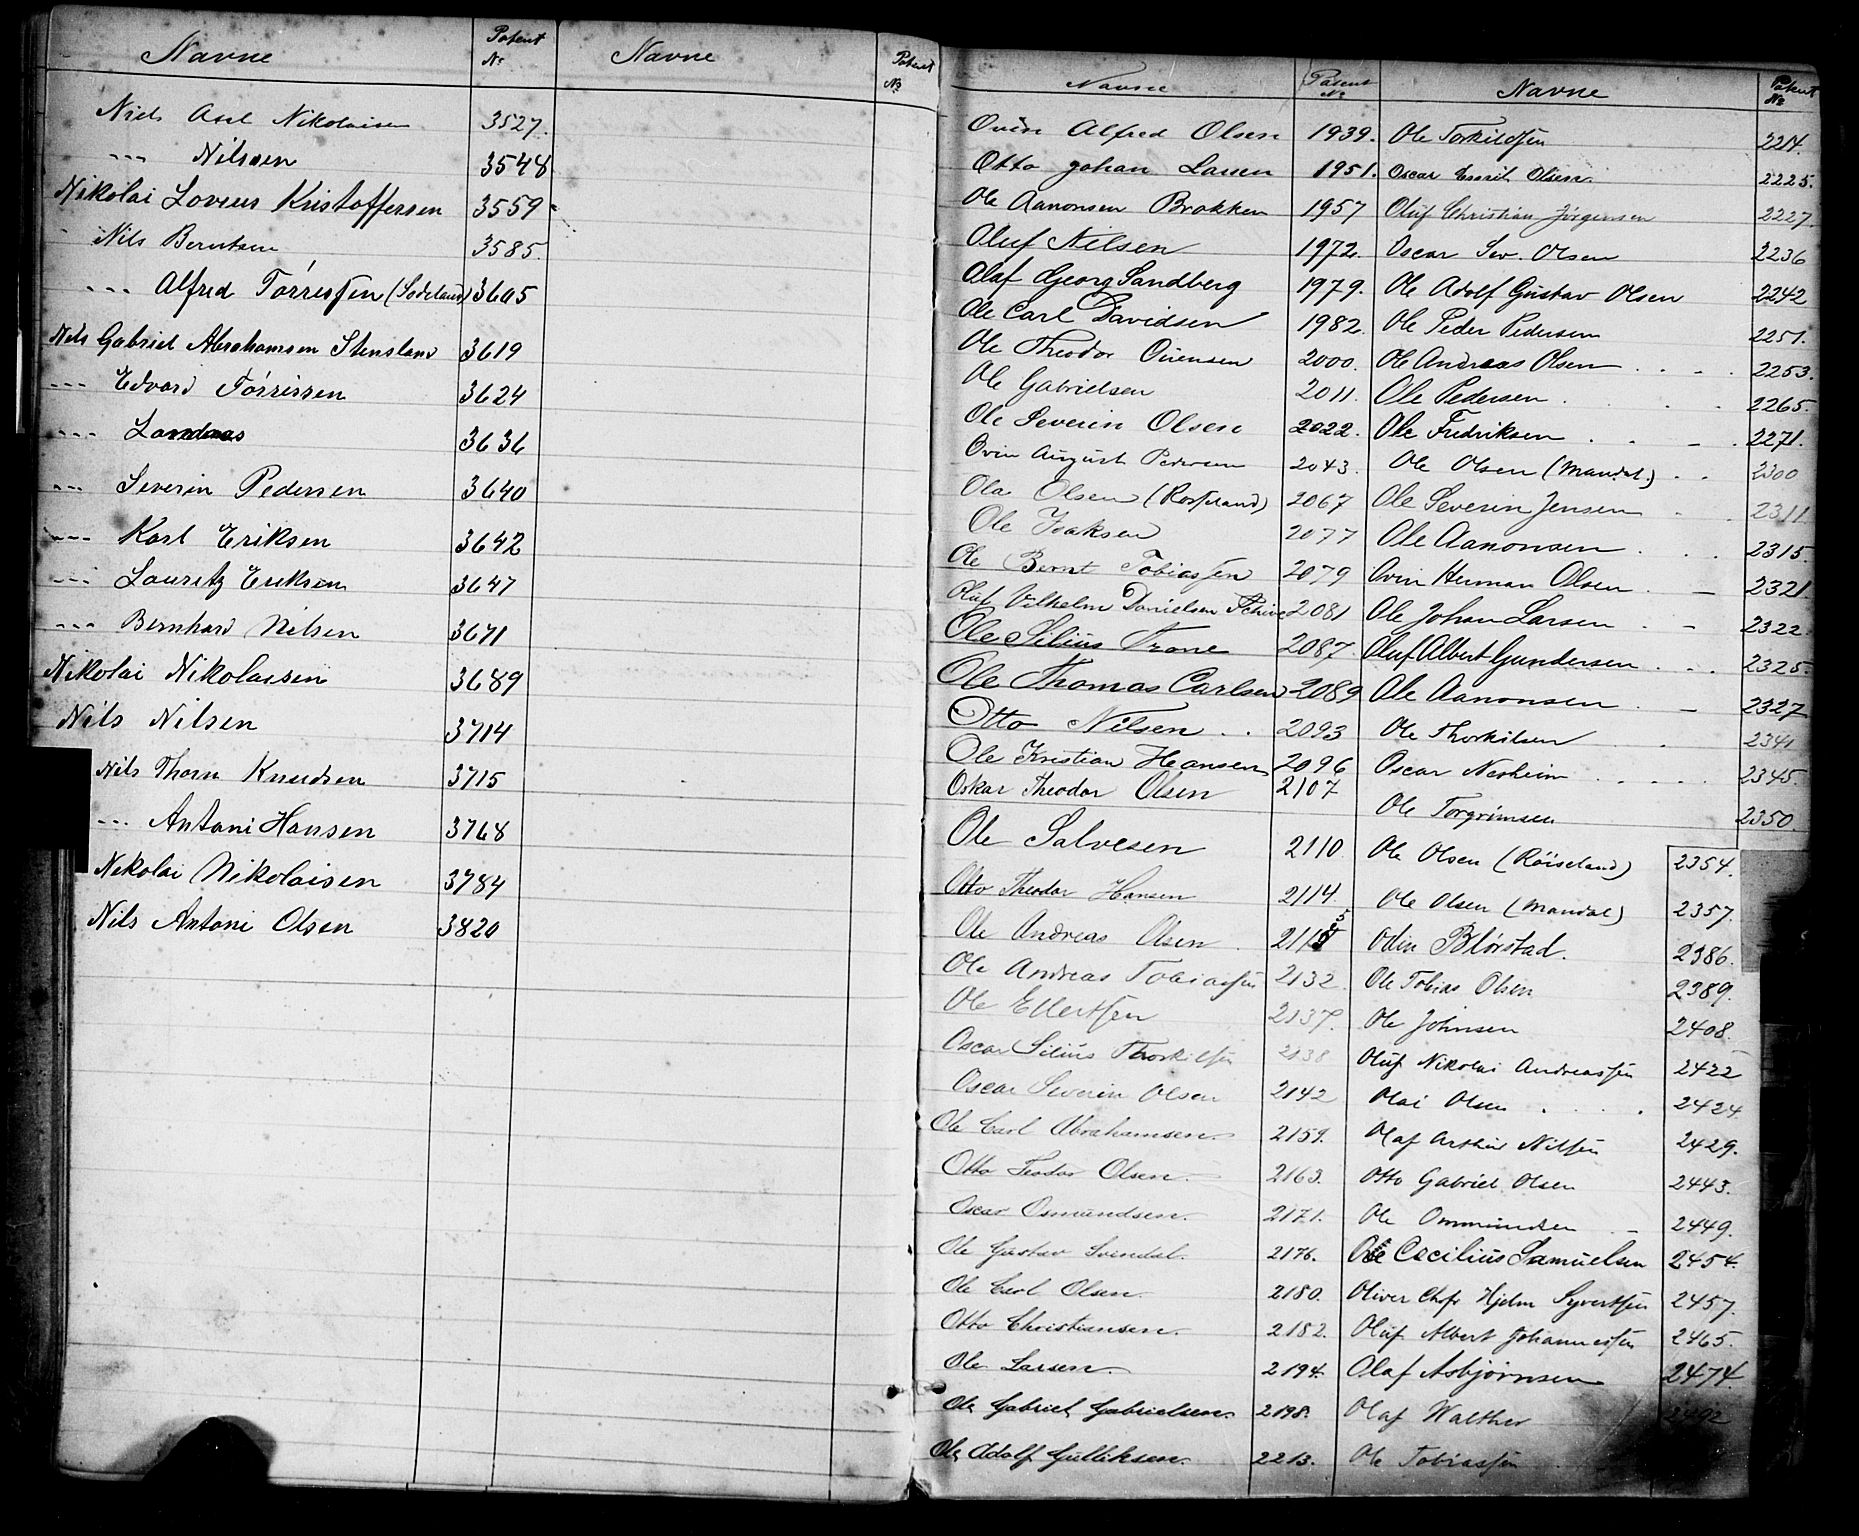 Navne Patent No Navne Patent No
Niels Axel Nikolaisen 3527.
--- Nilssen 3548
Nikolai Lovius Kristoffersen 3559
Nils Berntsen 3585.
--- Alfred Törressen (Sodeland) 3605
Nils Gabriel Abrahamsen Stensland 3619
--- Edvard Törrissen 3624
--- 3636
--- Severin Pedersen 3640
--- Karl Eriksen 3642
--- Lauritz Eriksen 3647
--- Bernhard Nilsen 3671
Nikolai Nikolaisen 3689
Nils Nilsen 3714
Nils Thorn Knudsen 3715
--- Antoni Hansen 3768
Nikolai Nikolaisen 3784
Nils Antoni Olsen 3820
Navne Patent No
Alfred Olsen 1939.
Otto Johan Larsen 1951.
Ole Aanonsen Brokken 1957
Oluf Nilsen 1972.
Olaf Georg Sandberg 1979.
Ole Carl Davidsen 1982.
Ole Theodor 2000.
Ole Gabrielsen 2011.
Ole Severin Olsen 2022.
August Pedersen 2043.
Ola Olsen 2067
Ole Isaksen 2077
Ole Bernt Tobiassen 2079
Oluf Vilhelm Danielsen 2081
Ole Silius Trane 2087
Ole Thomas Carlsen 2089
Otto Nilsen . . 2093
Ole Kristian Hansen 2096
Oskar Theodor Olsen 2107
Ole Salvesen 2110
Otto Theodor Hansen 2114
Ole Andreas Olsen . 2115
Ole Andreas Tobiassen 2132
Ole Ellertsen 2137.
Oscar Silius Thorkilsen 2138
Oscar Severin Olsen 2142
Ole Carl Abrahamsen. 2159.
Otto Teodor Olsen. 2163.
Oscar Osmundsen. 2171.
Ole Gustav Svindal. 2176.
Ole Carl Olsen. 2180.
Otto Christiansen. 2182.
Ole Larsen. 2194.
Ole Gabriel Gabrielsen. 2198.
Ole Adolf Gulliksen. 2213.
Navne Patent No
Ole Torkildsen 2214.
Oscar Emil Olsen. 2225.
Oluf Christian Jörgensen 2227
Oscar Sev. Olsen 2236
Ole Adolf Gustav Olsen 2242
Ole Peder Pedersen 2251.
Ole Andreas Olsen . . . 2253.
Ole Pedersen . . . 2265.
Ole Fredriksen . . . 2271.
Ole Olsen (Mandal.) . . 2300
Ole Severin Jensen . . 2311
Ole Aanonsen . . . 2315.
Herman Olsen . . 2321.
Ole Johan Larsen . . 2322.
Oluf Albert Gundersen . . . 2325.
Ole Aanonsen . . 2327
Ole Thorkilsen . . 2341
Oscar Nesheim . . . . 2345.
Ole Torgrimsen 2350.
Ole Olsen (Röiseland) 2354.
Ole Olsen (Mandal) 2357.
Odin Blörstad. 2386.
Ole Tobias Olsen 2389.
Ole Johnsen 2408.
Oluf Nikolai Andreassen 2422
Olai Olsen . . . 2424.
Olaf Arthur Nilsen 2429.
Otto Gabriel Olsen 2443.
Ole Ommundsen 2449.
Ole Cecilius Samuelsen 2454.
Oliver Chr. Hjelm Syvertsen 2457.
Oluf Albert Johannessen 2465.
Olaf Asbjørnsen 2474.
Olaf Walther 2492
Ole Tobiassen